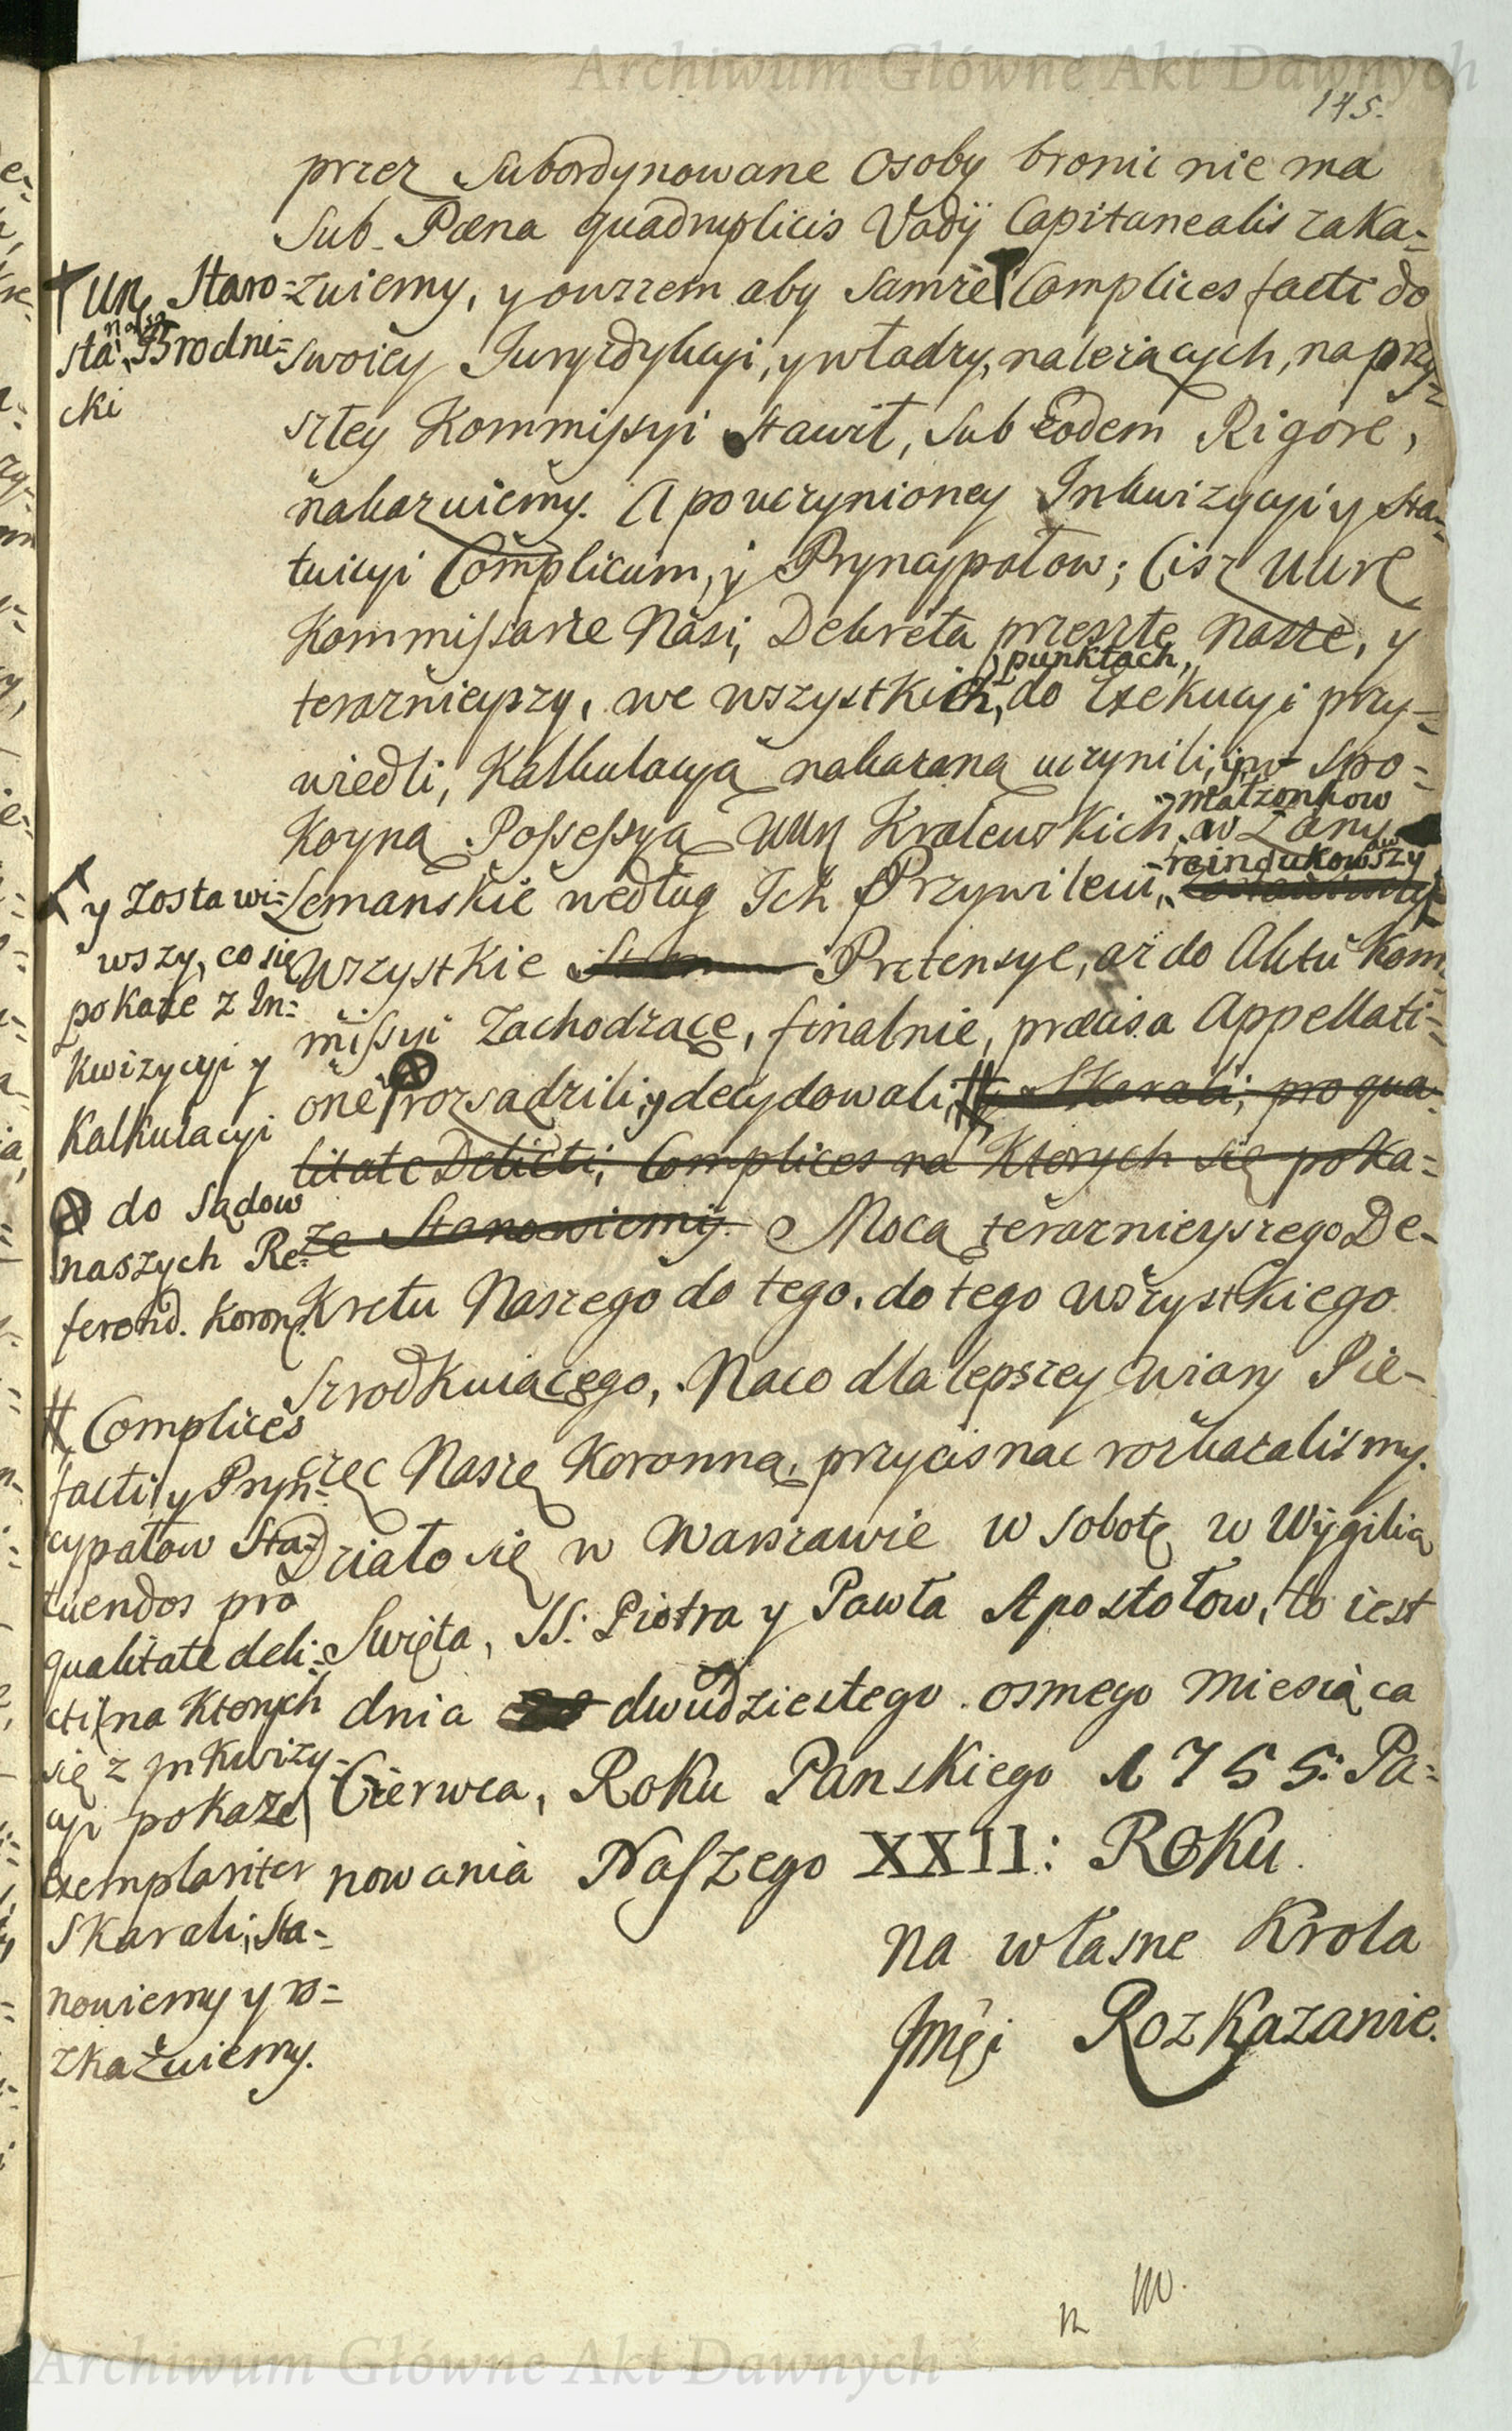 Archiwum Główne Akt Dawnych
145.
przez Subordynowane Osoby bronić nie ma
Sub Pœna quadruplicis Vadij Capitanealis zaka=
zuiemy, y owszem aby samże Complices facti do
swoiey Jurysdykcyi, y władzy, należących, na przy=
szłey Kommissyi stawił, sub Eodem Rigore,
nakazuiemy. A po uczynioney Inkwizycyi y Sta=
tuicyi Complicum, y Pryncypałow; Ciż UUrr
Kommissarze Nasi, Dekreta przeszłe Nasze, y
punktach,
teraznieyszy, we wszystkich, do Exekucyi przy=
wiedli, Kalkulacyą nakazaną uczynili, y w Spo=
małzonkow
koyną Possessyą UUr Kralewskich, w Łany
reindukowawszy
Lemanskie według Ich Przywileiu,
Wszystkie Pretensye, aż do Aktu Kom=
missyi Zachodzące, finalnie, præcisa Appellati=
one rozsądzili, y decydowali, Skarali; pro qua=
litate Delicti; Complices na Ktorych się poka=
że Stanowiemy. Mocą teraznieyszego De=
Kretu Naszego do tego, do tego wszystkiego
Szrodkuiącego, Na co dla lepszey Wiary Pie=
częć Naszę Koronną, przycisnąc rozkazalismy.
Działo się w Warszawie w Sobotę w Wigilią
Swięta, SS: Piotra y Pawła Apostołow, to iest
dnia dwudziestego osmego Miesiąca
Czerwca, Roku Panskiego 1755: Pa=
nowania Naszego XXII: Roku
Na własne Krola
Jmci Rozkazanie.
† Ur. Staro=
nasz
sta Brodni=
cki
y Zostawi=
wszy, co się
pokaże z In=
kwizycyi y
Kalkulacyi
do Sądow
naszych Re=
ferend. Koron.
# Complices
facti y Pryn=
cypałow Sta=
tuendos pro
qualitate deli=
cti (na Ktorych
się z inkwizy=
cyi pokaże)
Exemplariter
Skarali, Sta=
nowiemy y ro=
zkazuiemy.
Archiwum Główne Akt Dawnych